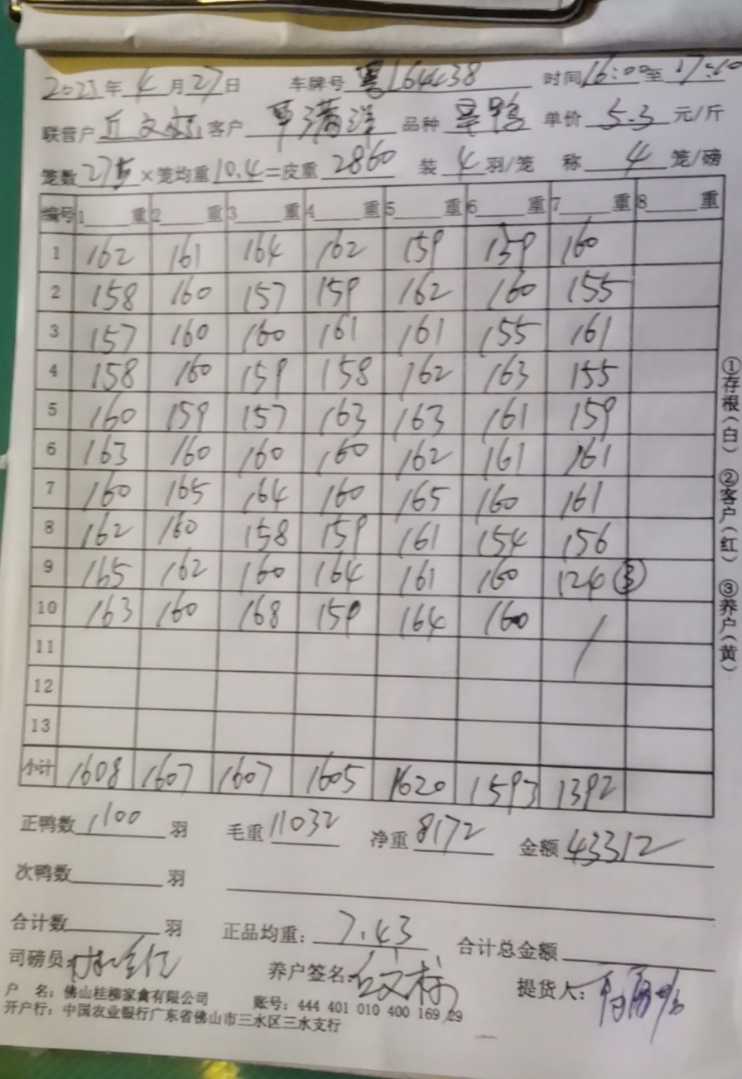 2023年 4月27日 车牌号 粤164438 时间16:00至17:10
联营户 丘文标 客户 覃满洋 品种 旱鸭 单价 5.3 元/斤
笼数 275 ×笼均重10.4=皮重 2860 装 4 羽/笼 称 4 笼/磅
编号 1 重 2 重 3 重 4 重 5 重 6 重 7 重 8 重
1 162 161 164 162 159 159 160
2 158 160 157 159 162 160 155
3 157 160 160 161 161 155 161
4 158 160 159 158 162 163 155
5 160 159 157 163 163 161 159
6 163 160 160 160 162 161 161
7 160 165 164 160 165 160 161
8 162 160 158 159 161 154 156
9 165 162 160 164 161 160 124 ③
10 163 160 168 159 164 160 /
11
12
13
小计 1608 1607 1607 1605 1620 1593 1392
正鸭数 1100 羽 毛重 11032 净重 8172 金额 43312
次鸭数 羽
合计数 羽 正品均重: 7.43 合计总金额
司磅员 养户签名: 丘文标 提货人:
户 名: 佛山桂柳家禽有限公司 账号: 444 401 010 400 169 29
开户行: 中国农业银行广东省佛山市三水区三水支行
①存根(白) ②客户(红) ③养户(黄)